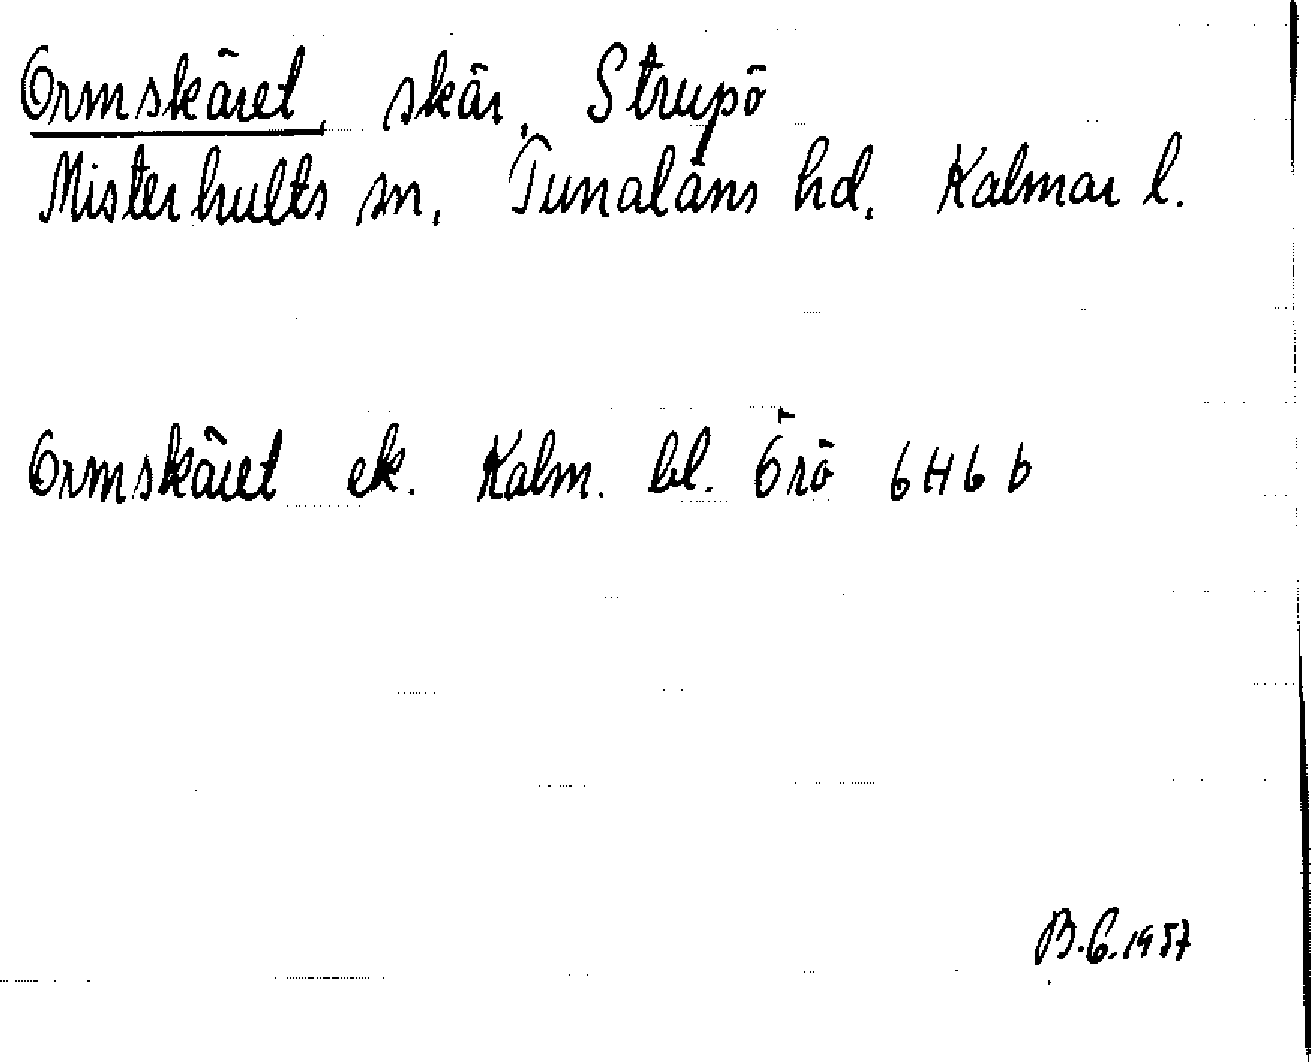 Ormskäret, skär, Strupö
Misterhults sn, Tunaläns hd, Kalmar l.
Ormskäret ek. Kalm. bl. Örö 6H6b
B.G. 1957